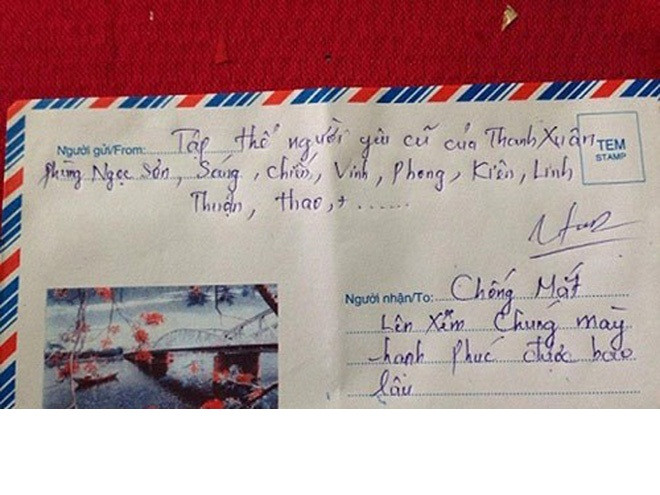 Người gửi/From: Tập thể người yêu cũ của Thanh Xuân
Phùng Ngọc Sơn, Sáng, Chiến, Vinh, Phong, Kiên, Linh
Thuận, thao, + ......
TEM
STAMP
Người nhận/To: Chống Mắt
Lên Xem Chúng mày
hạnh phúc được bao
lâu